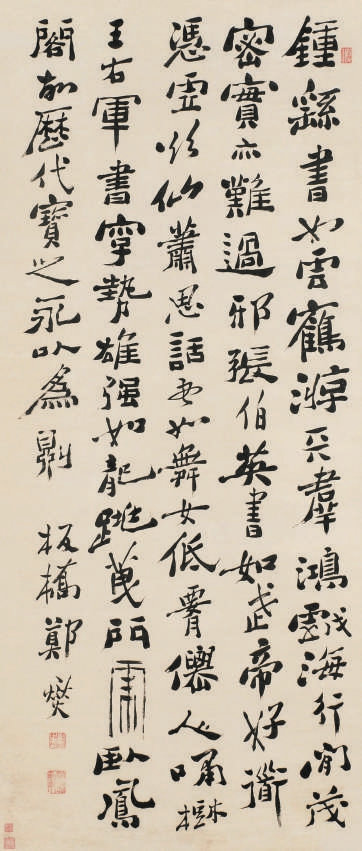 鍾繇書如雲鶴游天羣鴻戲海行間茂
密實亦難過邪張伯英書如武帝好道
憑虛欲仙蕭思話書如舞女低腰僊人嘯樹
王右軍書字勢雄强如龍跳天門虎臥鳳
閣故歷代寶之永以爲訓 板橋鄭燮